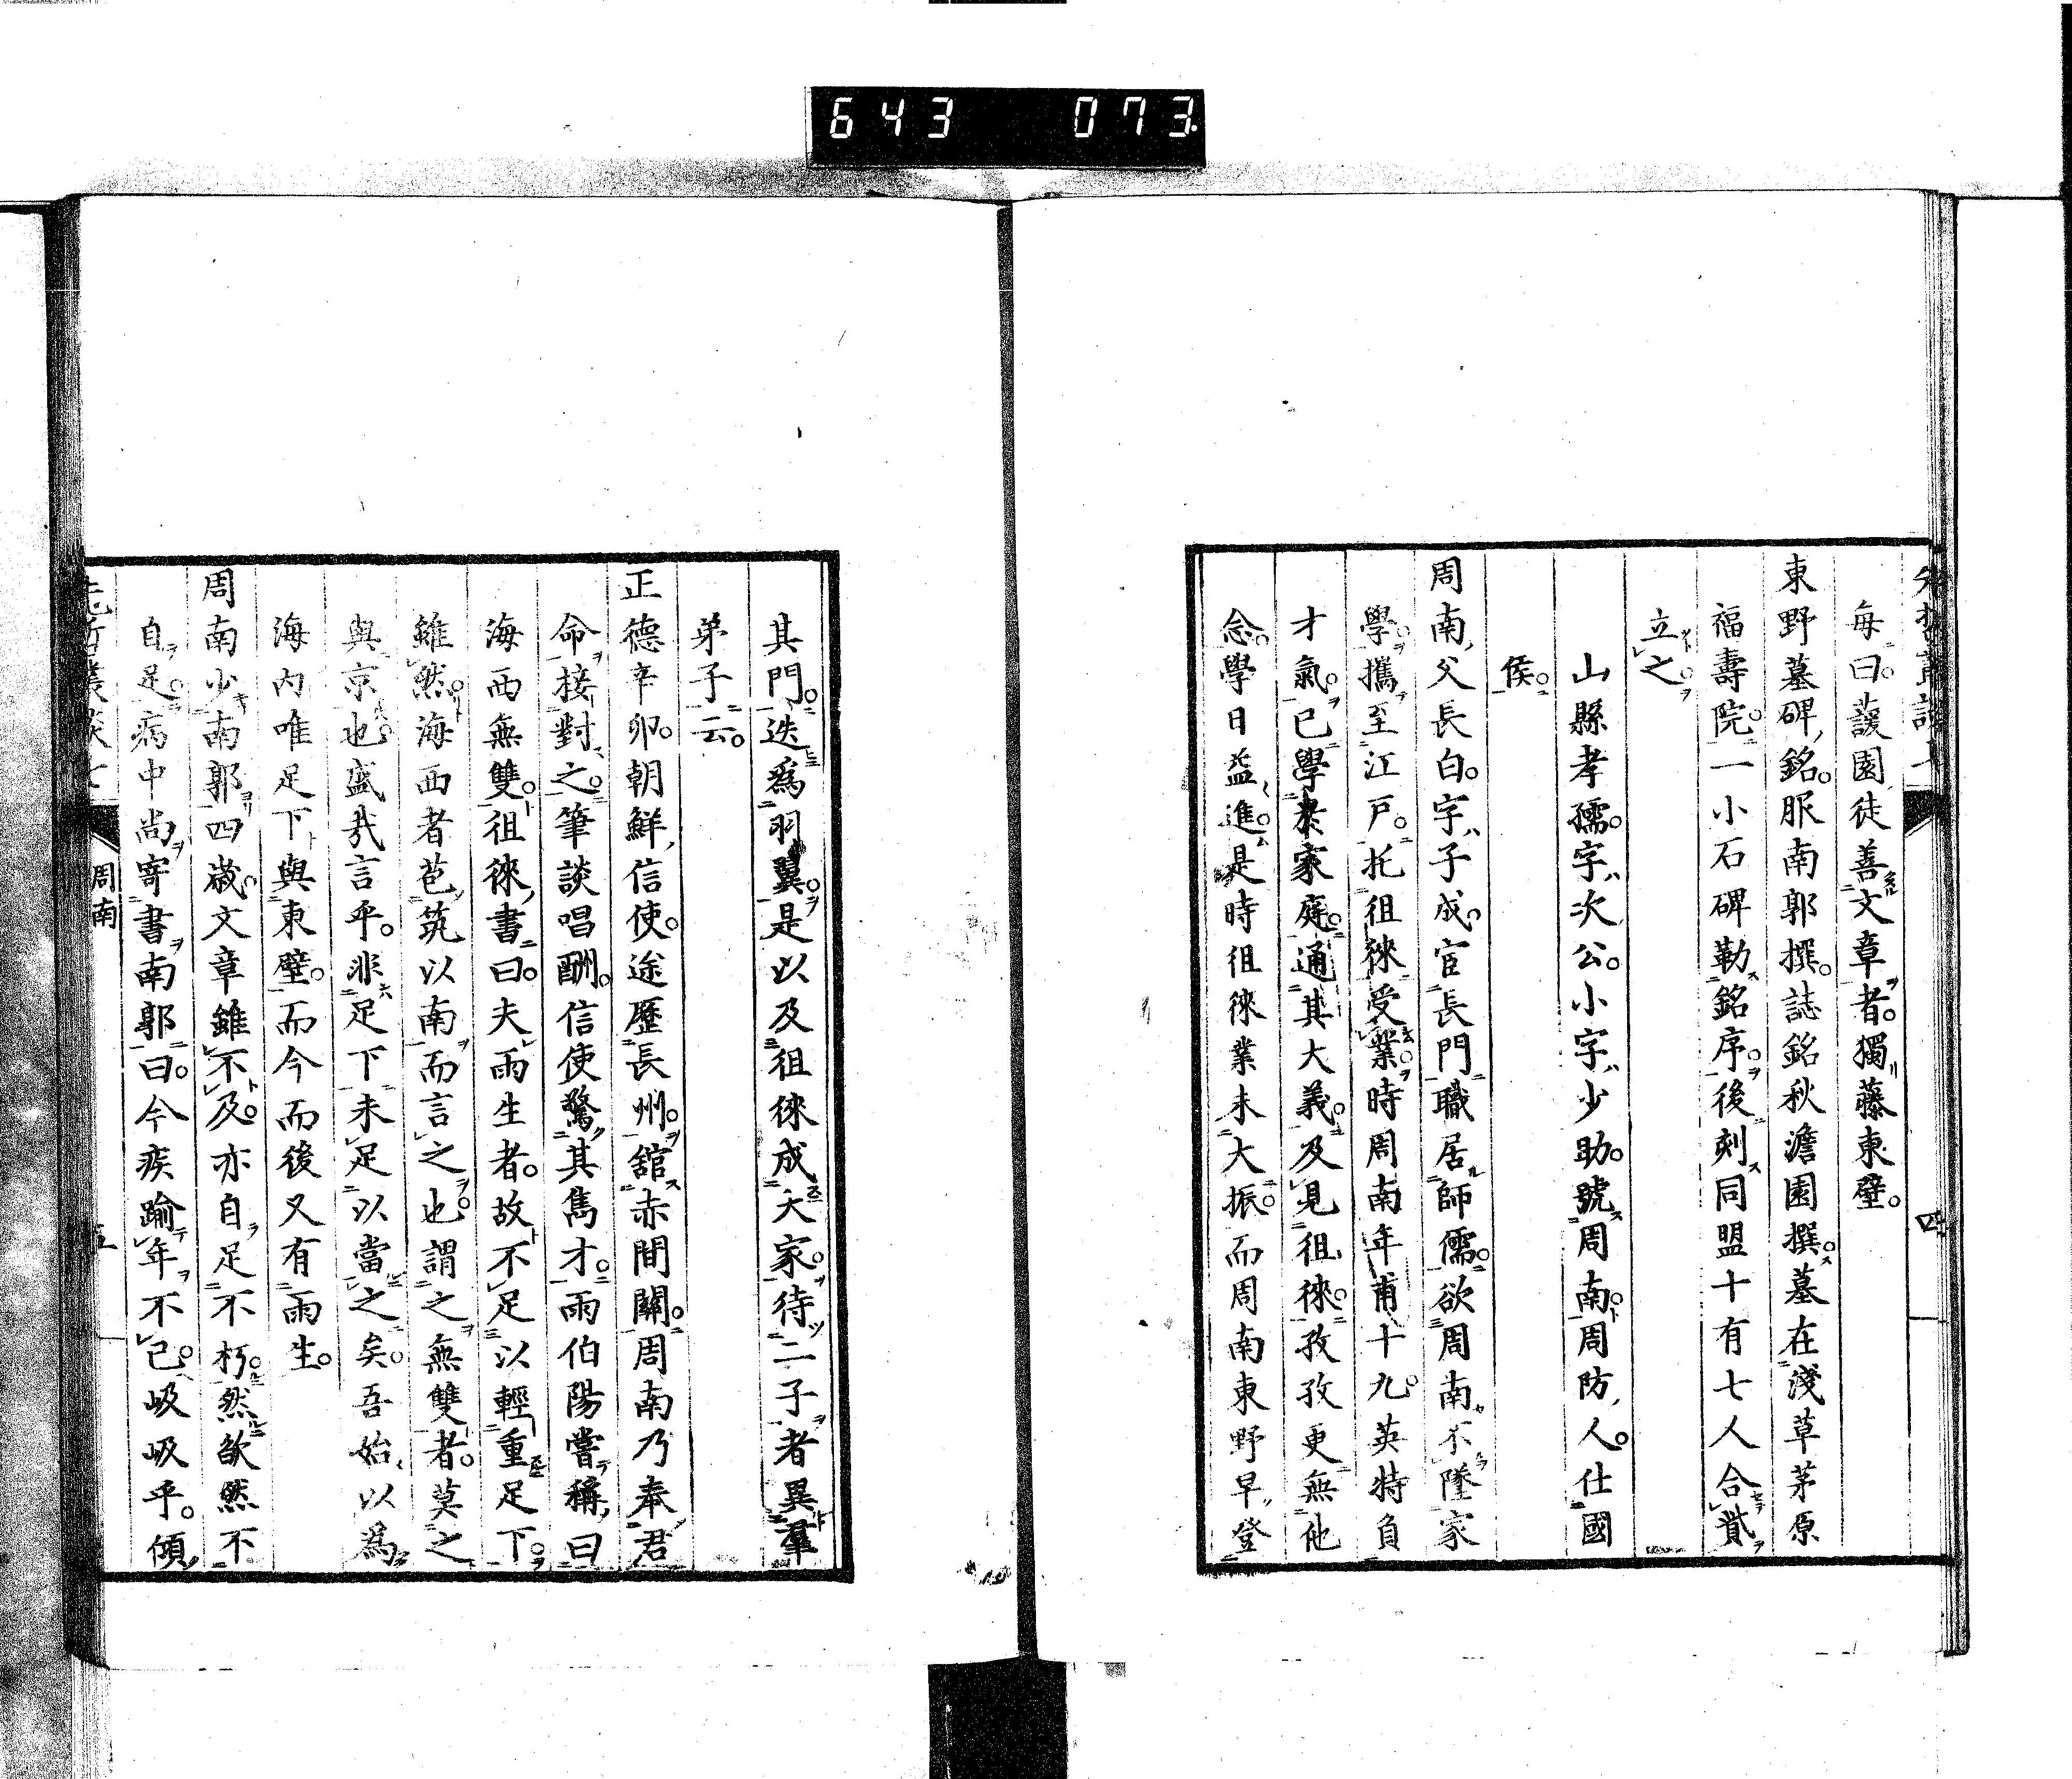 643 073
先哲叢談七
四
每曰。蘐園徒善文章者。獨藤東壁。
東野墓碑銘。服南郭撰。誌銘秋澹園撰。墓在淺草茅原
福壽院。一小石碑勒銘序。後刻同盟十有七人合貲
立之
山縣孝孺。字次公。小字少助。號周南。周防人。仕國
侯。
周南父長白。字子成。宦長門職居師儒。欲周南不墜家
學。攜至江戶。托徂徠受業。時周南年甫十九。英特負
才氣。已學家庭。通其大義。及見徂徠。孜孜更無他
念。學日益進。是時徂徠業未大振。而周南東野早登
其門。迭爲羽翼。是以及徂徠成大家。待二子者異羣
弟子云。
正德辛卯。朝鮮信使。途歷長州。舘赤間關。周南乃奉君
命接對之。筆談唱酬。信使驚其雋才。雨伯陽嘗稱曰
海西無雙。徂徠書曰。夫雨生者。故不足以輕重足下。
雖然海西者苞筑以南而言之也。謂之無雙者。莫之
與京也。盛哉言乎。非足下未足以當之矣。吾始以爲
海內唯足下與東壁。而今而後又有雨生。
周南少南郭四歲。文章雖不及。亦自足不朽。然欿然不
自足。病中尚寄書南郭曰。今疾踰年不已。岋岋乎。傾
先哲叢談七
周南
五